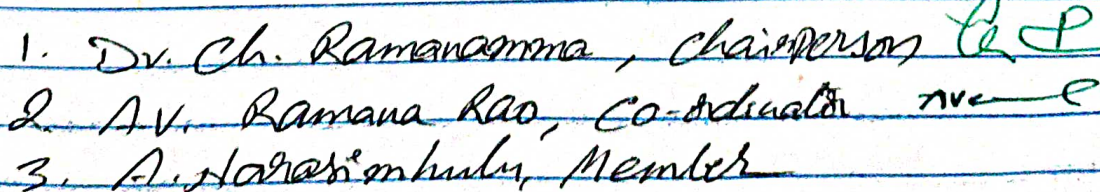 1. Dr. Ch. Ramanamma, Chairperson
2. A.V. Ramana Rao, Co-ordinator
3. A. Narasimhulu, Member